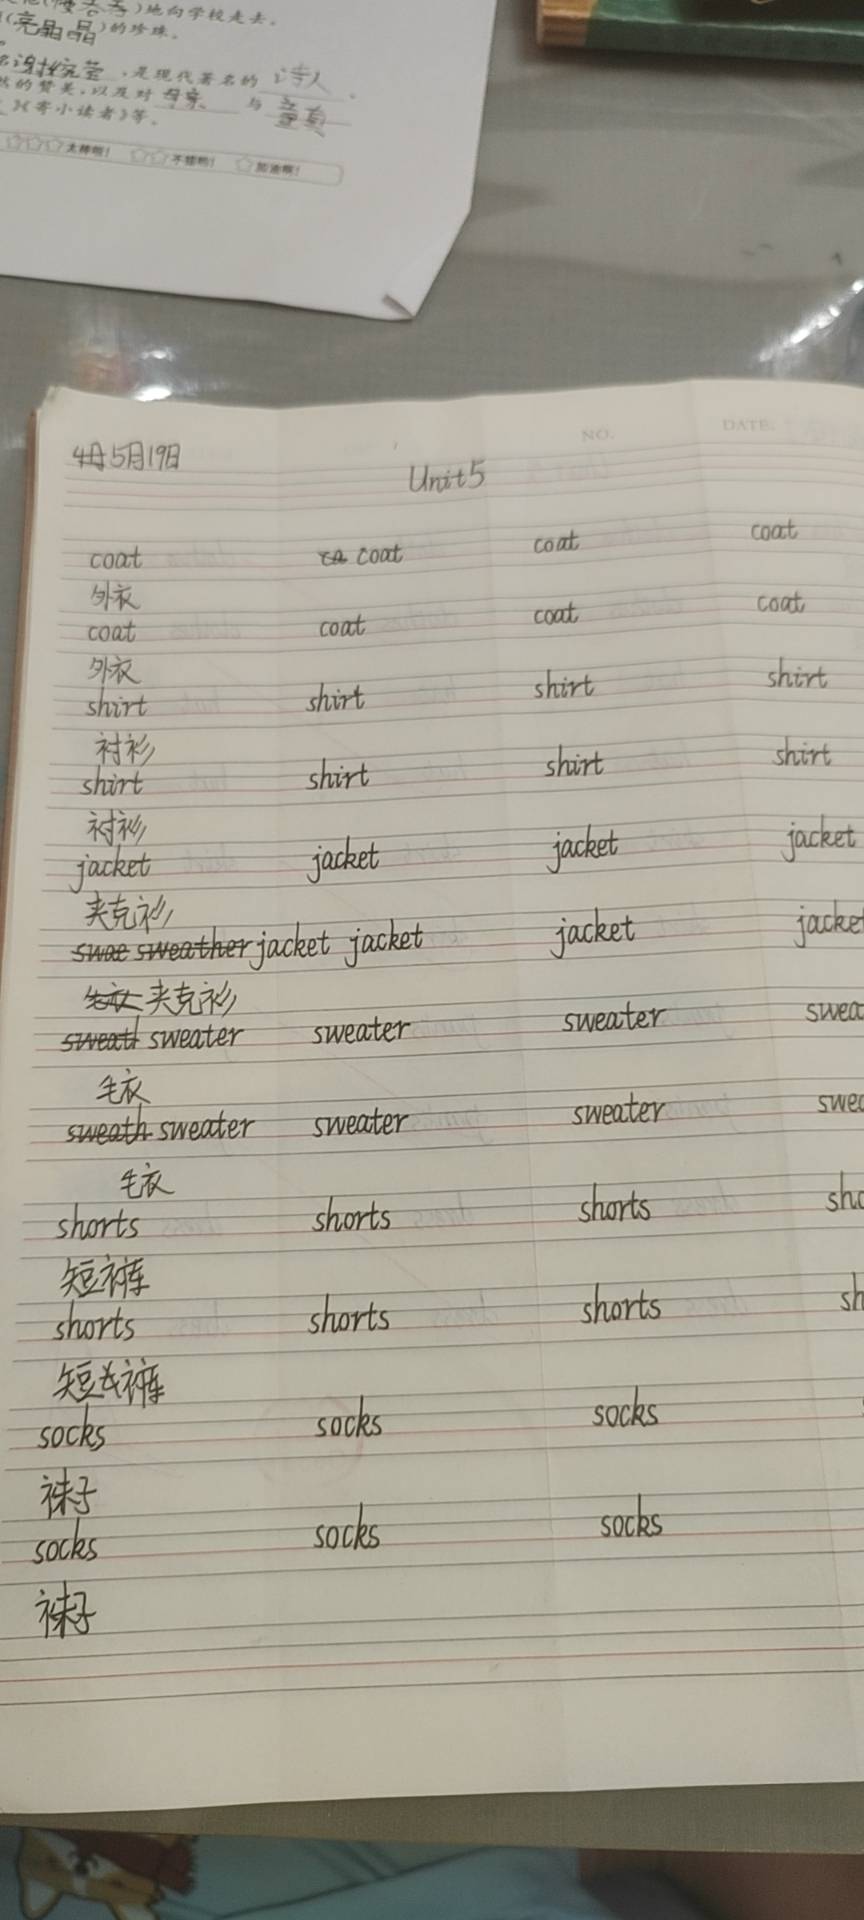 地向学校走去。
(亮晶晶)的珍珠。
谢婉莹,是现代著名的 诗人 。
的赞美,以及对 母亲 与 童真
》《寄小读者》等。
太棒啦! 不错哟! 加油啊!
NO. DATE:
5月19日
Unit5
coat coat coat coat
外衣
coat coat coat coat
外衣
shirt shirt shirt shirt
衬衫
shirt shirt shirt shirt
衬衫
jacket jacket jacket jacket
夹克衫
swae sweather jacket jacket jacket jacke
毛衣 夹克衫
sweatl sweater sweater sweater swea
毛衣
sweath sweater sweater sweater swea
毛衣
shorts shorts shorts sho
短裤
shorts shorts shorts sh
短裤
socks socks socks
袜子
socks socks socks
袜子